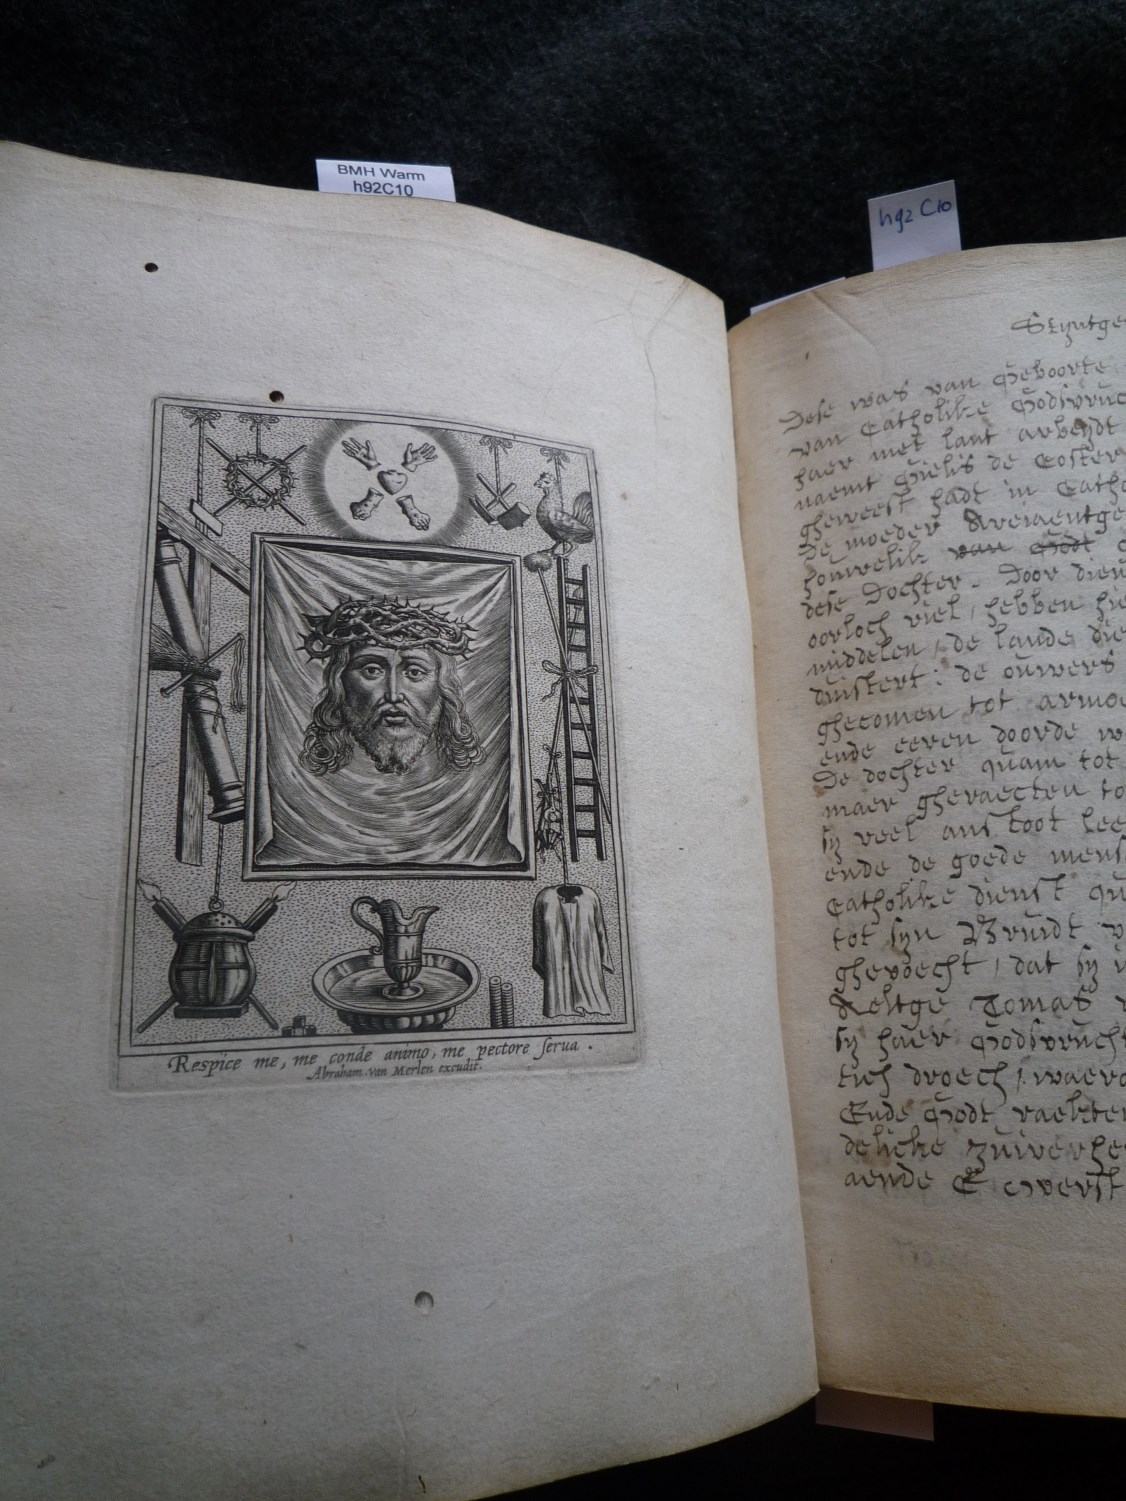 BMH Warm
h92C10
h92 C10
Respice me, me conde animo, me pectore serua.
Abraham van Merlen excudit.
Dese was van gheboorte
van Catholike godtvruc
haer met lant arbeydt
naemt Gielis de Coster
gheweest hadt in Catho
De moeder Ariaentge
houwelik van Godt
dese dochter. Door dien
oorloch viel, hebben hi
middelen, de lande die
: de ouwers
ghecomen tot armoe
ende eeren doorde w
De dochter quam tot
maer gheraecten to
sy veel lee
ende de goede mens
Catholike dienst qu
tot syn Bruidt v
ghevoecht, dat sy
Aeltge Tomas
sy haer godtvrucht
tich droech, waero
Ende Godt
delicke zuiverhe
aende